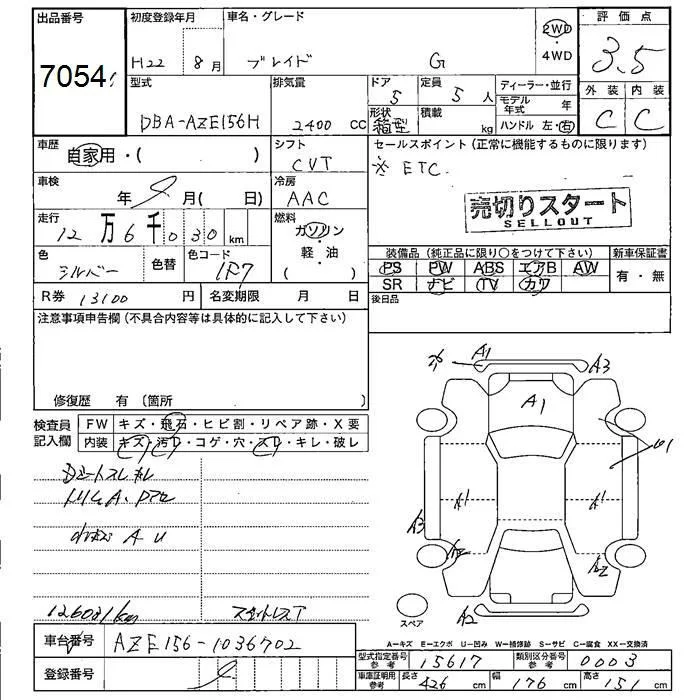 出品番号
7054
初度登録年月
H22 8月
車名・グレード
ブレイド G
2WD
・
4WD
評価点
3.5
外装 内装
C C
型式
DBA-AZE156H
排気量
2400 CC
ドア
5
定員
5 人
形状
箱型
積載
kg
ディーラー・並行
モデル年式 年
ハンドル 左・右
車歴
自家用・( )
シフト
CVT
セールスポイント(正常に機能するものに限ります)
※ ETC
売切りスタート
SELLOUT
車検
年 月( 日)
冷房
AAC
走行
12万6千030km
燃料
ガソリン
軽・油
( )
色
シルバー
色替
色コード
1F7
装備品(純正品に限り〇をつけて下さい)
新車保証書
PS PW ABS エアB AW
有・無
SR ナビ TV カワ
R券 13100 円
名変期限 月 日
後日品
注意事項申告欄(不具合内容等は具体的に記入して下さい)
修復歴 有(箇所 )
検査員
記入欄
FW キズ・飛石・ヒビ割・リペア跡・X要
内装 キズ・汚レ・コゲ・穴・スレ・キレ・破レ
※ A1 A3
A1
A1 A1
A3
A2
A2
スペア
126031km
車台番号 AZE156-1036702
登録番号
A−キズ E−エクボ U−凹み W−補修跡 S−サビ C−腐食 XX−交換済
型式指定番号
参考
15617
類別区分番号
参考
0003
車庫証明用
参考
長さ 426 cm 幅 176 cm 高さ 151 cm